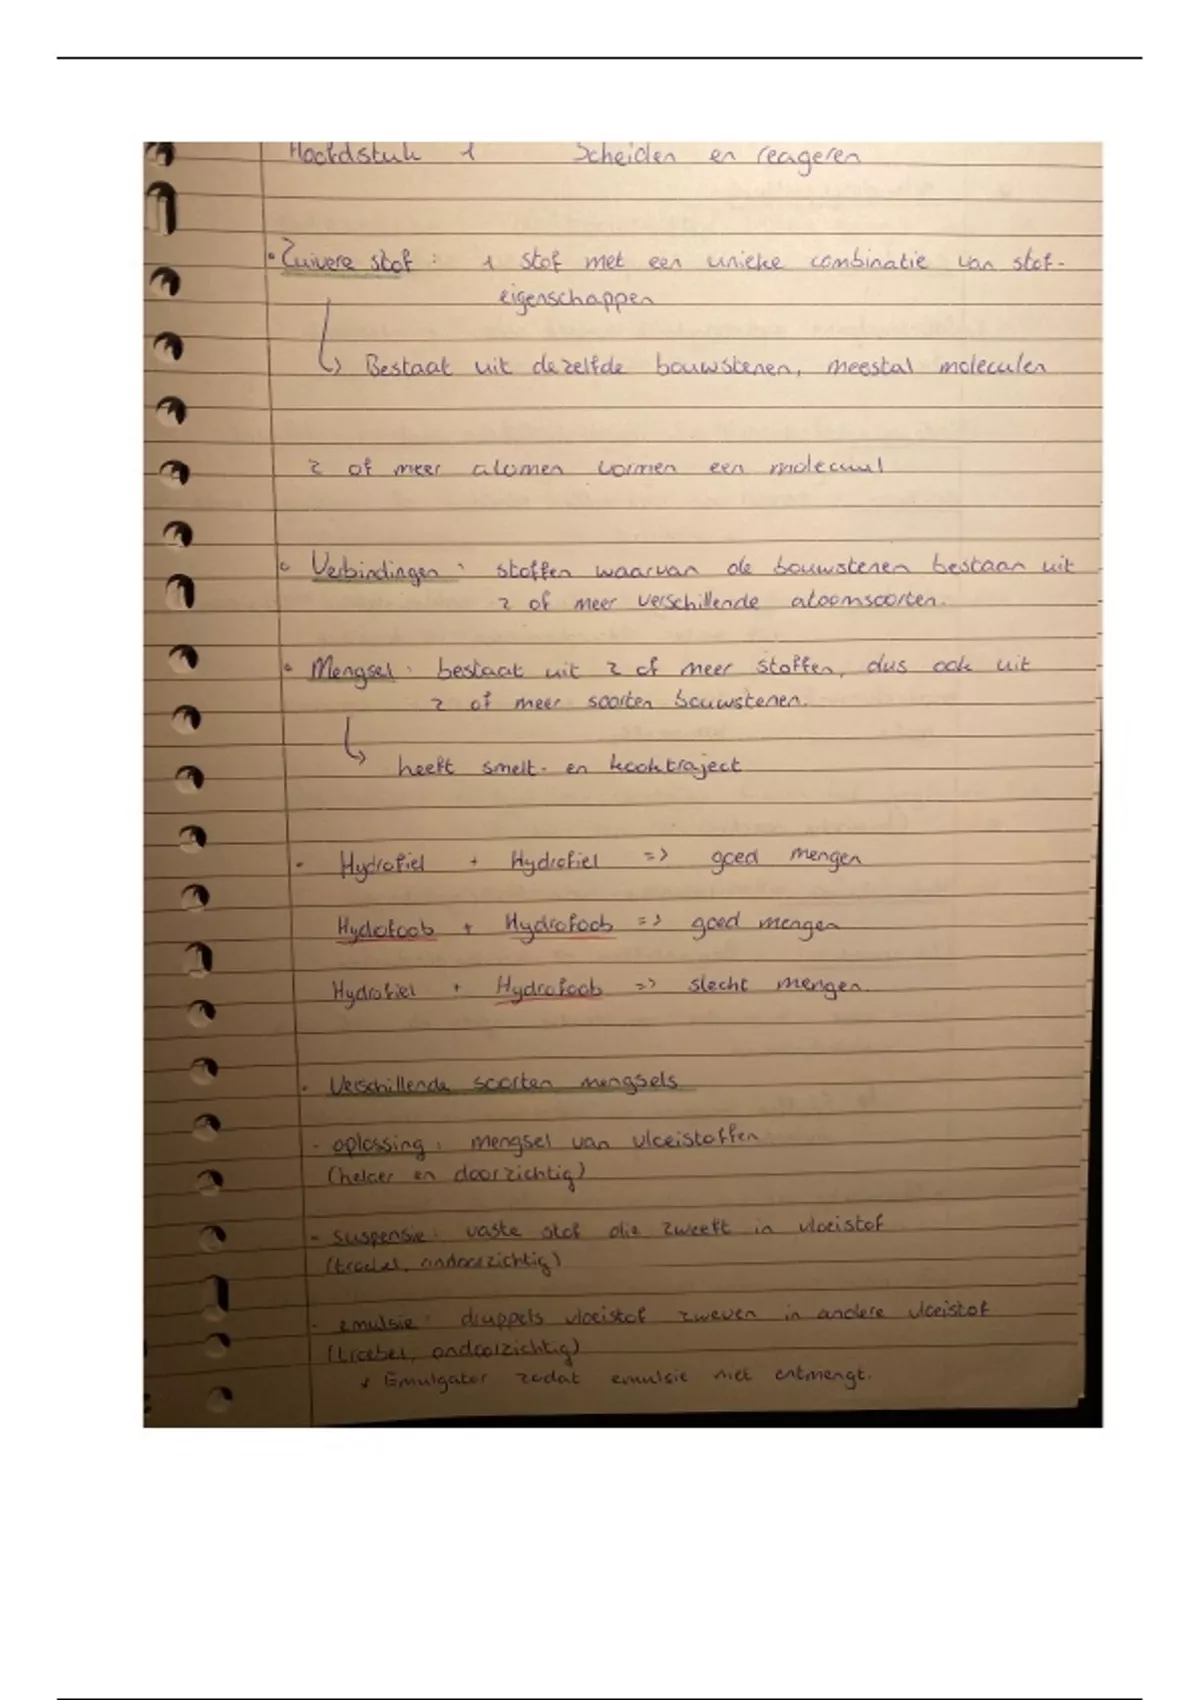 Hoofdstuk 1 Scheiden en reageren
• Zuivere stof : 1 stof met een unieke combinatie van stof-
eigenschappen
↳ Bestaat uit dezelfde bouwstenen, meestal moleculen
2 of meer atomen vormen een molecuul
• Verbindingen : stoffen waarvan de bouwstenen bestaan uit
2 of meer verschillende atoomsoorten.
• Mengsel : bestaat uit 2 of meer stoffen, dus ook uit
2 of meer soorten bouwstenen.
↳ heeft smelt- en kooktraject
• Hydrofiel + Hydrofiel => goed mengen
Hydofoob + Hydrofoob => goed mengen
Hydrofiel + Hydrofoob => slecht mengen.
• Verschillende soorten mengsels
- oplossing : mengsel van vloeistoffen
(helder en doorzichtig)
- suspensie : vaste stof die zweeft in vloeistof
(troebel, ondoorzichtig)
- emulsie : druppels vloeistof zweven in andere vloeistof
(troebel, ondoorzichtig)
↳ Emulgator zodat emulsie niet ontmengt.